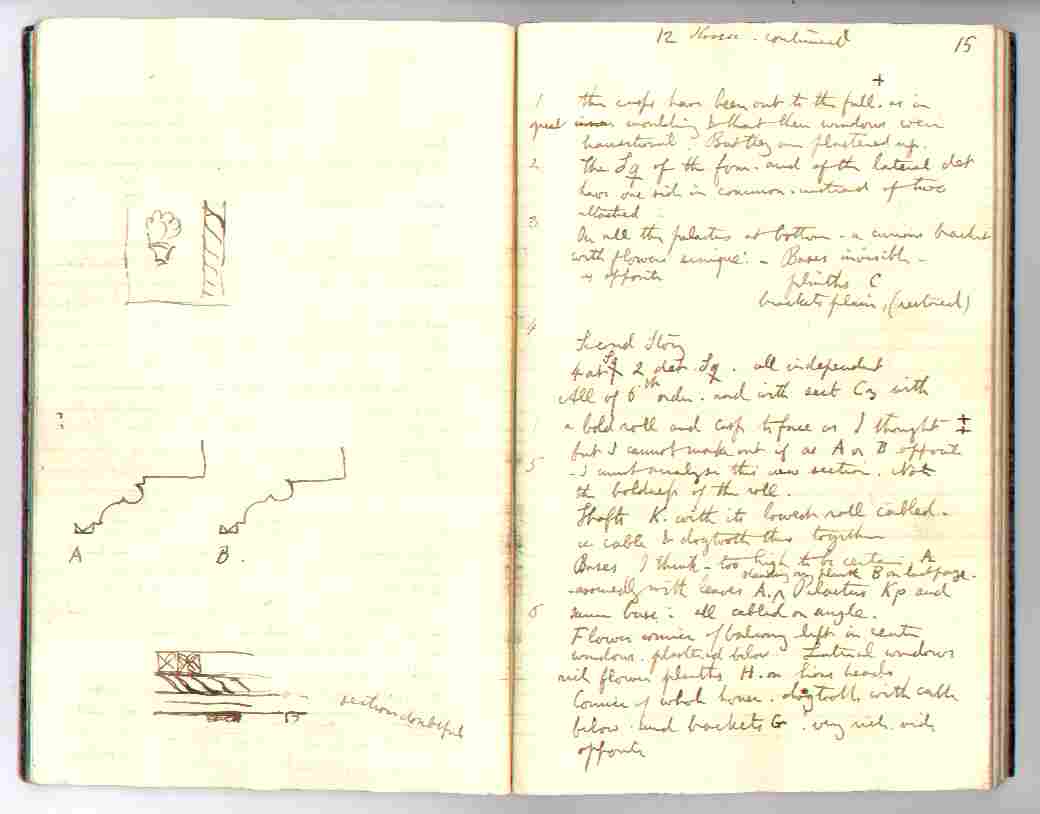 A
B.
section doubtful
12 House. continued
15
+
1 the cusps have been cut to the full. as in
great moulding & that then windows were
transitional. But they are plastered up.
2 The Sq of the four. and of the lateral det
have one side in common. instead of two
attached
3 On all the pilasters at bottom - a curious bracket
with flowers unique: - Bases invisible -
is opposite plinths C
brackets plain, (restored)
4
Second Story
4 att Sq 2 det. Sq. all independent
All of 5th order. and with sect C3 with
a bold roll and cusp to face as I thought ++
but I cannot make out if as A or B opposite
5 - I must analyse this section. Note
the boldness of the roll.
Shafts K. with its lowest roll cabled -
ie cable & dogtooth thus together
Bases I think - too high to be certain A
standing on plinth B on last page.
- assuredly with leaves A. Pilasters Kp and
6 same base: all cabled on angle.
Flower cornice of balcony left in centre
windows. plastered below. Lateral windows
rich flower plinths H. on lions heads
Cornice of whole house. dogtooth with cable
below and brackets G. very rich. vide
opposite